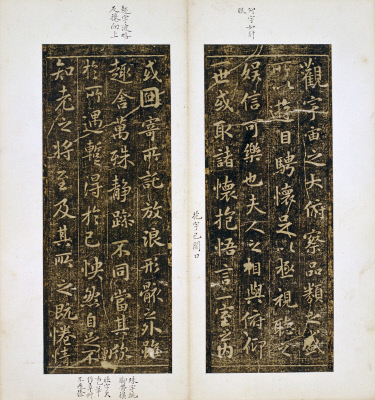 觀宇宙之大俯察品類之盛
所以遊目騁懷足以極視聽之
娛信可樂也夫人之相與俯仰
一世或取諸懷抱悟言一室之內
抱字已開口
或因寄所託放浪形骸之外雖
趣舍萬殊靜躁不同當其欣
於所遇蹔得於己怏然自足不
知老之將至及其所之既惓情